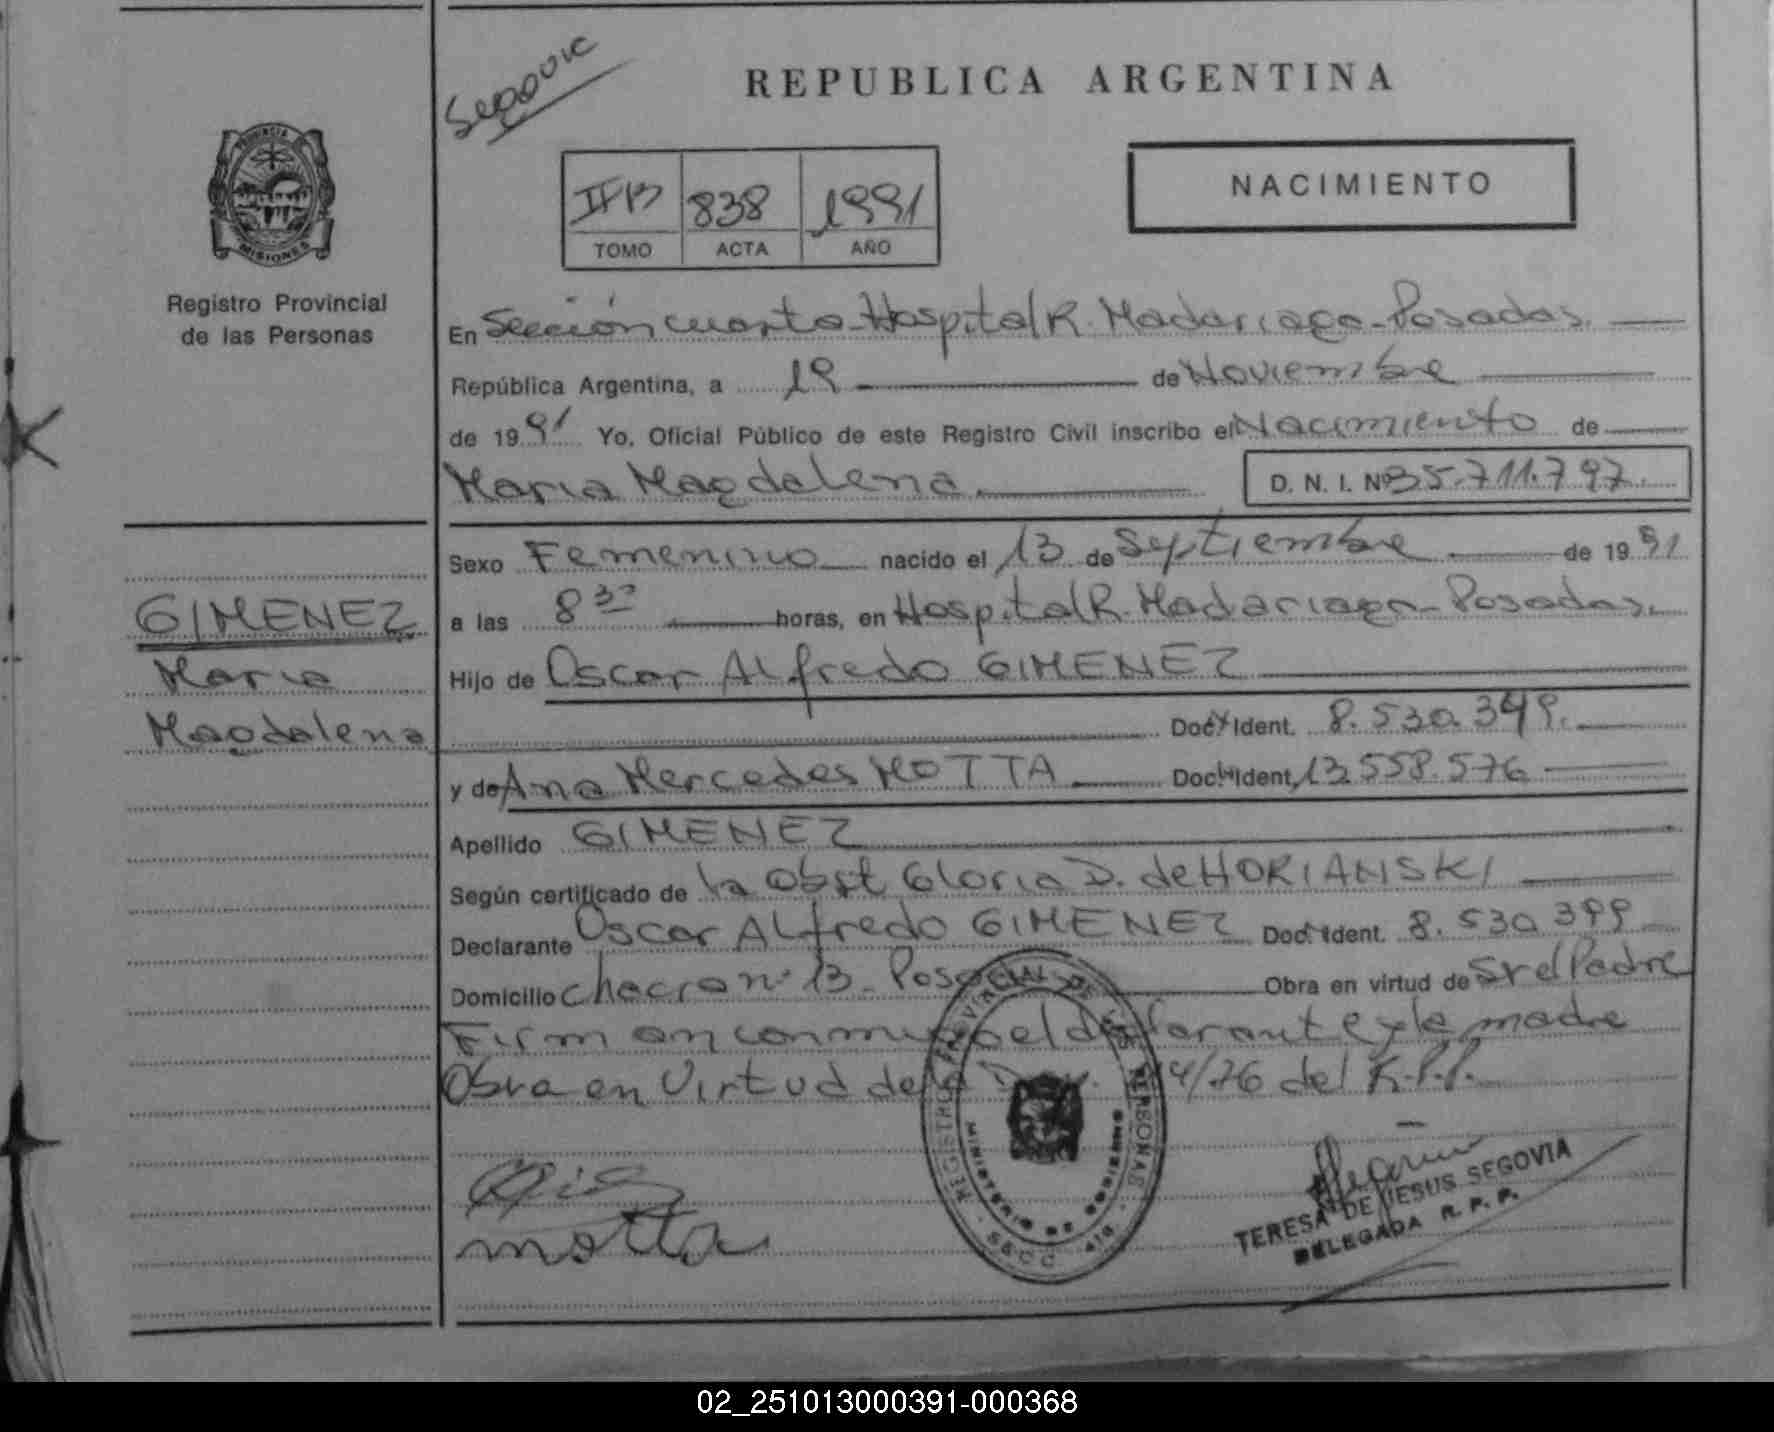 REPUBLICA ARGENTINA
PROVINCIA DE
MISIONES
Registro Provincial
de las Personas
838 1991
TOMO ACTA AÑO
NACIMIENTO
En Sección cuarta-Hospital R. Madariaga-Posadas.
República Argentina, a 19 de Noviembre
de 1991 Yo, Oficial Público de este Registro Civil inscribo el Nacimiento de
Maria Magdalena. D. N. I. Nº 35.711.797.
GIMENEZ
Maria
Magdalena
Sexo Femenino nacido el 13 de Septiembre de 1991
a las 8 30 horas, en Hospital R. Madariaga-Posadas.
Hijo de Oscar Alfredo GIMENEZ
Doc. Ident. 8.530.399.
y de Ana Mercedes MOTTA Doc. Ident. 13.558.576
Apellido GIMENEZ
Según certificado de la Obst Gloria D. de HORIANSKI
Declarante Oscar Alfredo GIMENEZ Doc. Ident. 8.530.399
Domicilio Chacra nº 13. Posadas Obra en virtud de Sr el Padre
Firman conmigo el declarante y la madre
Obra en Virtud de la 4/76 del R.P.P.
REGISTRO PROVINCIAL DE LAS PERSONAS
MINISTERIO DE GOBIERNO
SECC. 4ta
motta
TERESA DE JESUS SEGOVIA
DELEGADA R. P. P.
02_251013000391-000368